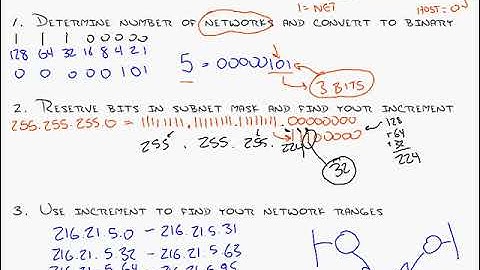 1 = NET
HOST = 0
1. DETERMINE NUMBER OF NETWORKS AND CONVERT TO BINARY
1 1 1 0 0 0 0 0
128 64 32 16 8 4 2 1
0 0 0 0 0 1 0 1
5 = 00000101
3 BITS
2. RESERVE BITS IN SUBNET MASK AND FIND YOUR INCREMENT
255.255.255.0 = 11111111.11111111.11111111.00000000
111
255 . 255 . 255 . 224
32
128
+ 64
+ 32
224
3. USE INCREMENT TO FIND YOUR NETWORK RANGES
216.21.5.0 - 216.21.5.31
216.21.5.32 - 216.21.5.63
216.21.5.64 - 216.21.5.95